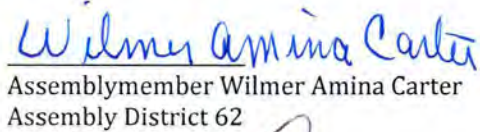 Wilmer Amina Carter
Assemblymember Wilmer Amina Carter
Assembly District 62